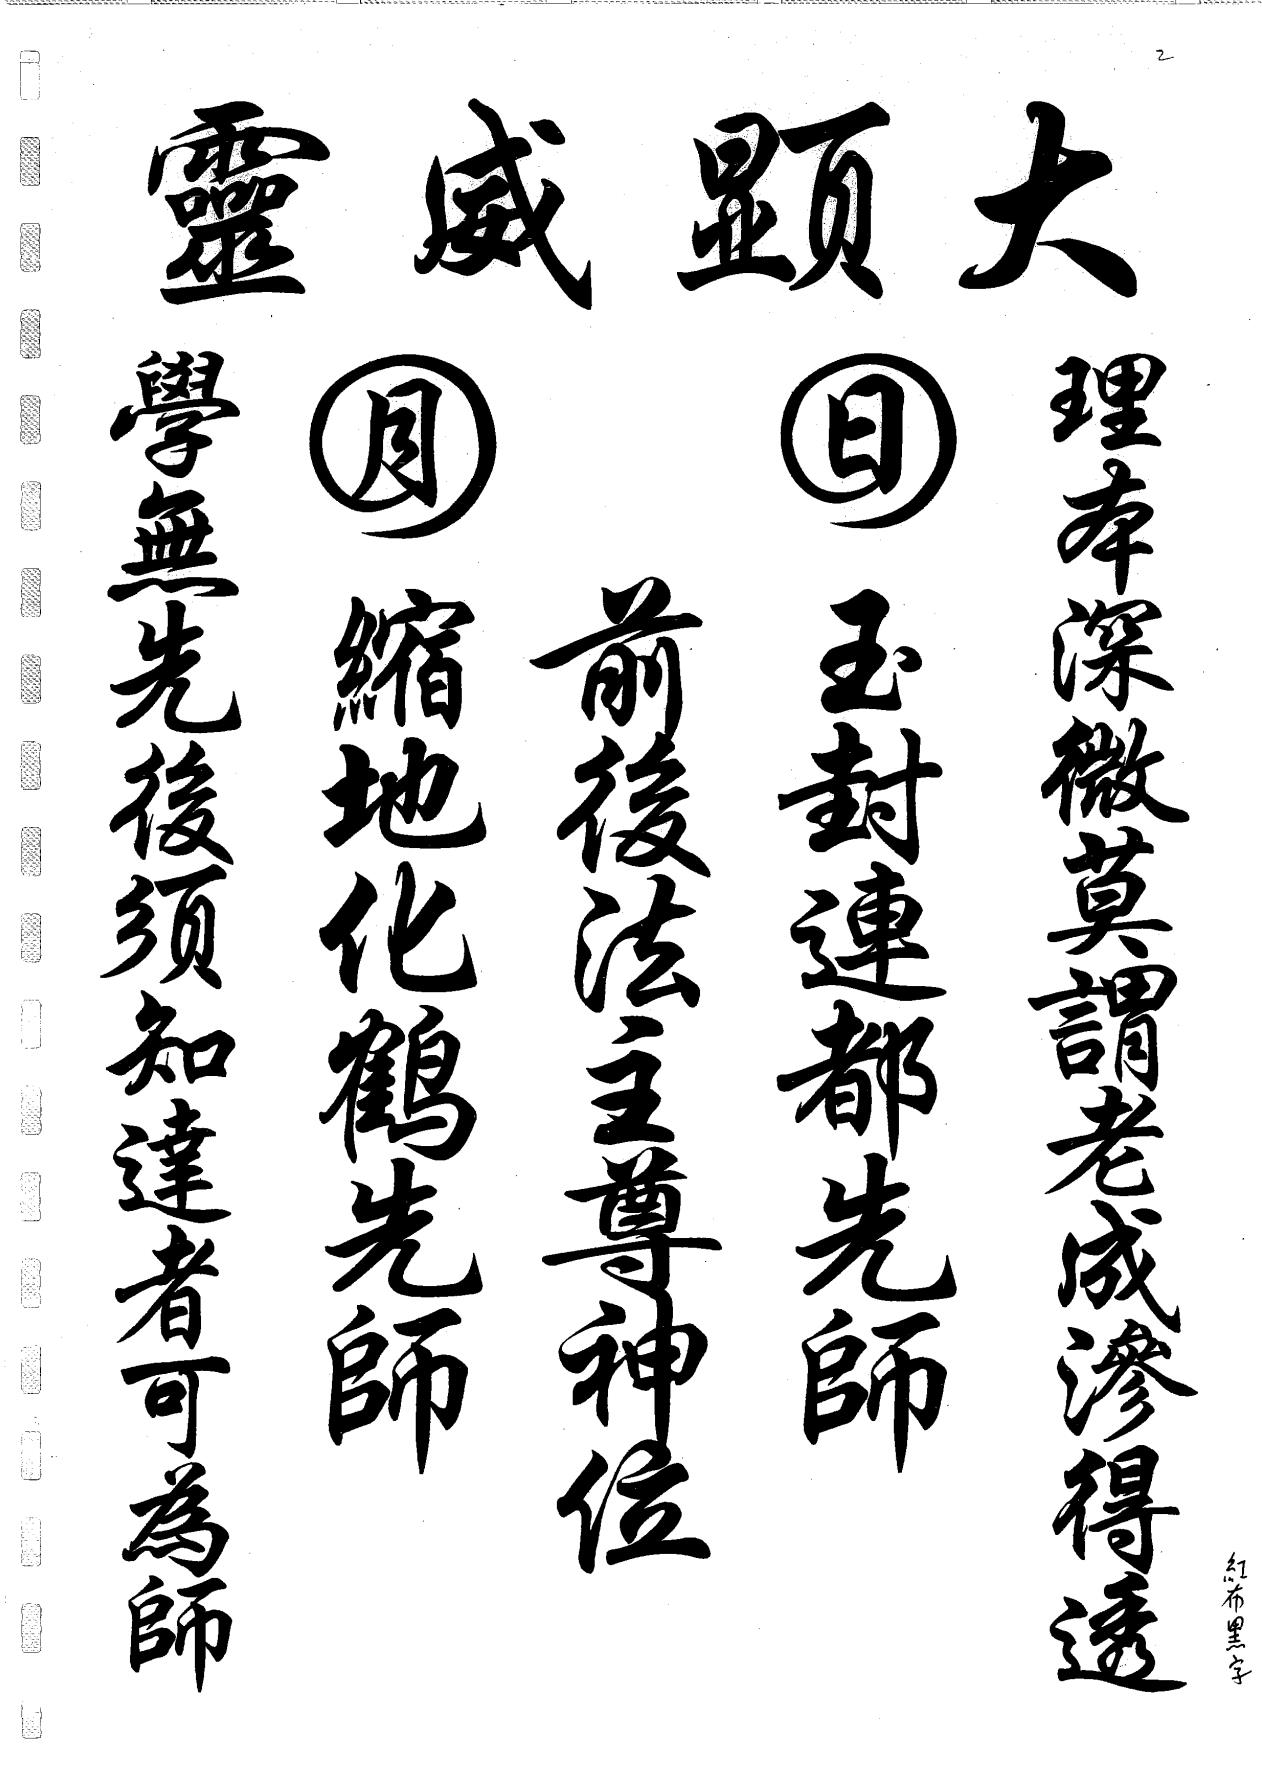 2
大顯威靈
理本深微莫謂老成滲得透
日
玉封連都先師
前後法主尊神位
月
縮地化鶴先師
學無先後須知達者可為師
紅布黑字